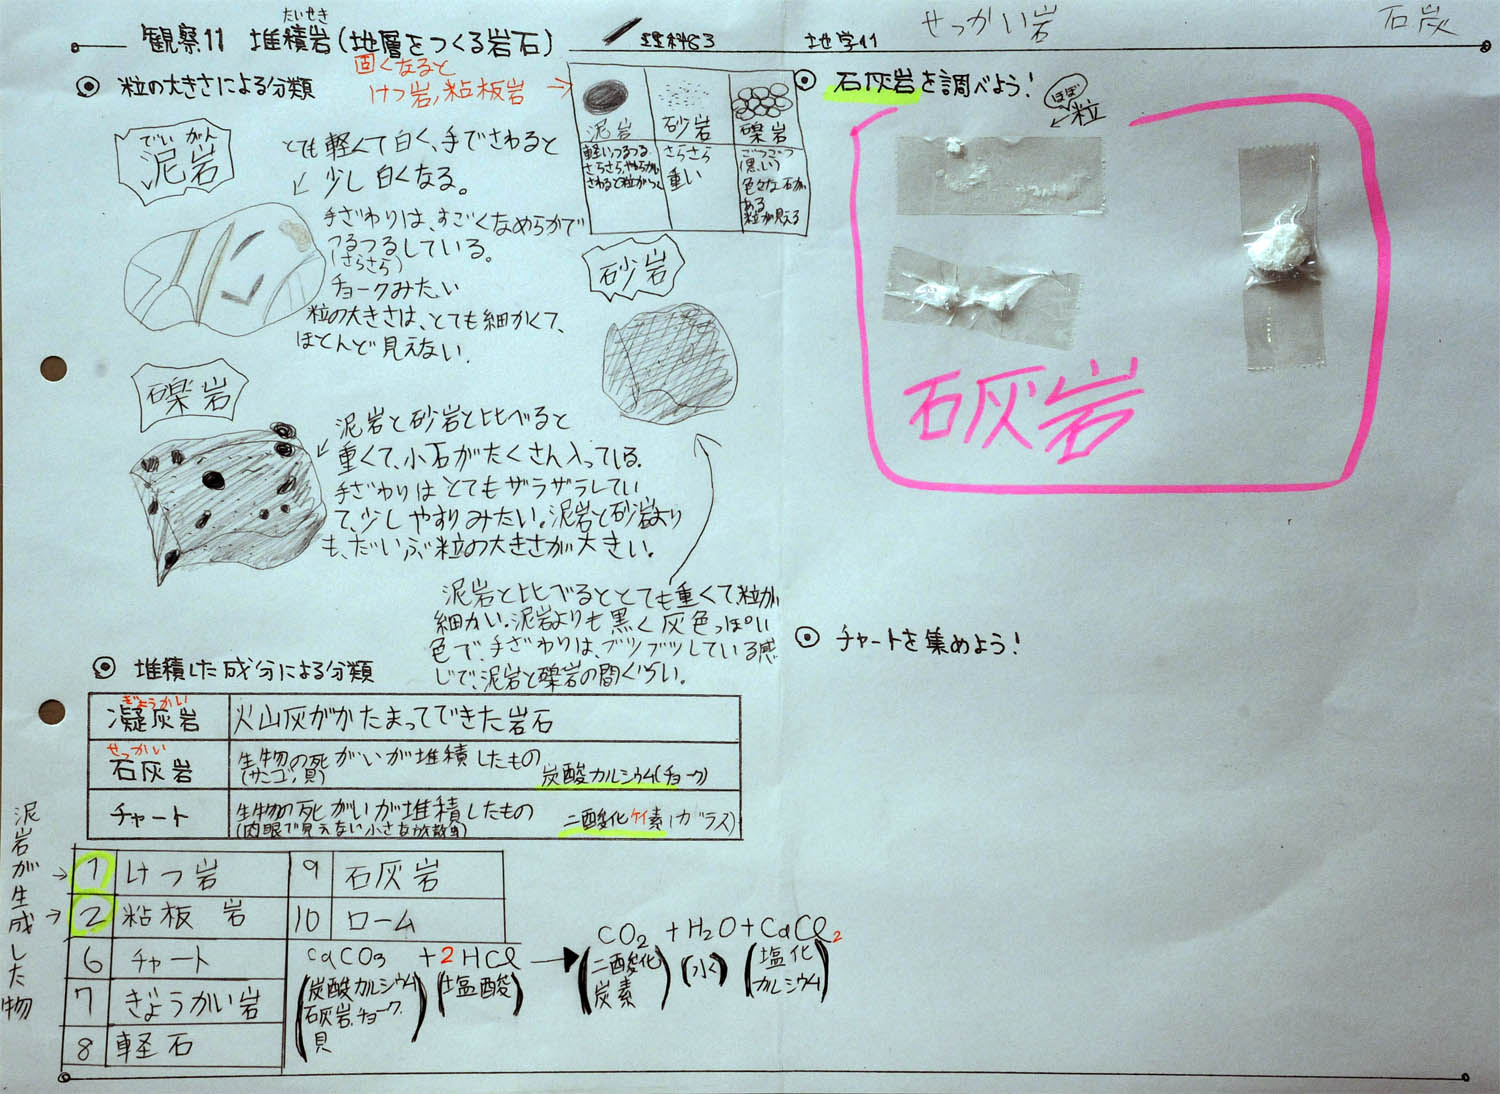 せっかい岩
石炭
たいせき
観察11 堆積岩(地層をつくる岩石)
理科83
地学11
粒の大きさによる分類
固くなると
けつ岩,粘板岩
でいがん
泥岩
とても軽くて白く、手でさわると
少し白くなる。
手ざわりは、すごくなめらかで
つるつるしている。
(さらさら)
チョークみたい
粒の大きさは、とても細かくて、
ほとんど見えない.
泥岩
砂岩
礫岩
軽い,つるつる
さらさら,やわらかい
さわると粒がつく
さらさら
重い
ごつごつ
(黒い)
色々な石が
ある
粒が見える
砂岩
礫岩
泥岩と砂岩と比べると
重くて、小石がたくさん入っている.
手ざわりはとてもザラザラしてい
て、少しやすりみたい。泥岩と砂岩より
も、だいぶ粒の大きさが大きい。
泥岩と比べるととても重くて粒が
細かい.泥岩よりも黒く灰色っぽい
色で、手ざわりは、ブツブツしている感
じで、泥岩と礫岩の間ぐらい。
堆積した成分による分類
ぎょうかい
凝灰岩 火山灰がかたまってできた岩石
せっかい
石灰岩 生物の死がいが堆積したもの
(サンゴ,貝) 炭酸カルシウム(チョーク)
チャート 生物の死がいが堆積したもの
(肉眼で見えない小さな放散虫) 二酸化ケイ素(ガラス)
泥岩が生成した物
1 けつ岩 9 石灰岩
2 粘板岩 10 ローム
6 チャート
7 ぎょうかい岩
8 軽石
CaCO3 + 2HCl → CO2 + H2O + CaCl2
(炭酸カルシウム
石灰岩.チョーク.
貝)
(塩酸)
(二酸化
炭素)
(水)
(塩化
カルシウム)
石灰岩を調べよう!
ほぼ
粒
石灰岩
チャートを集めよう!